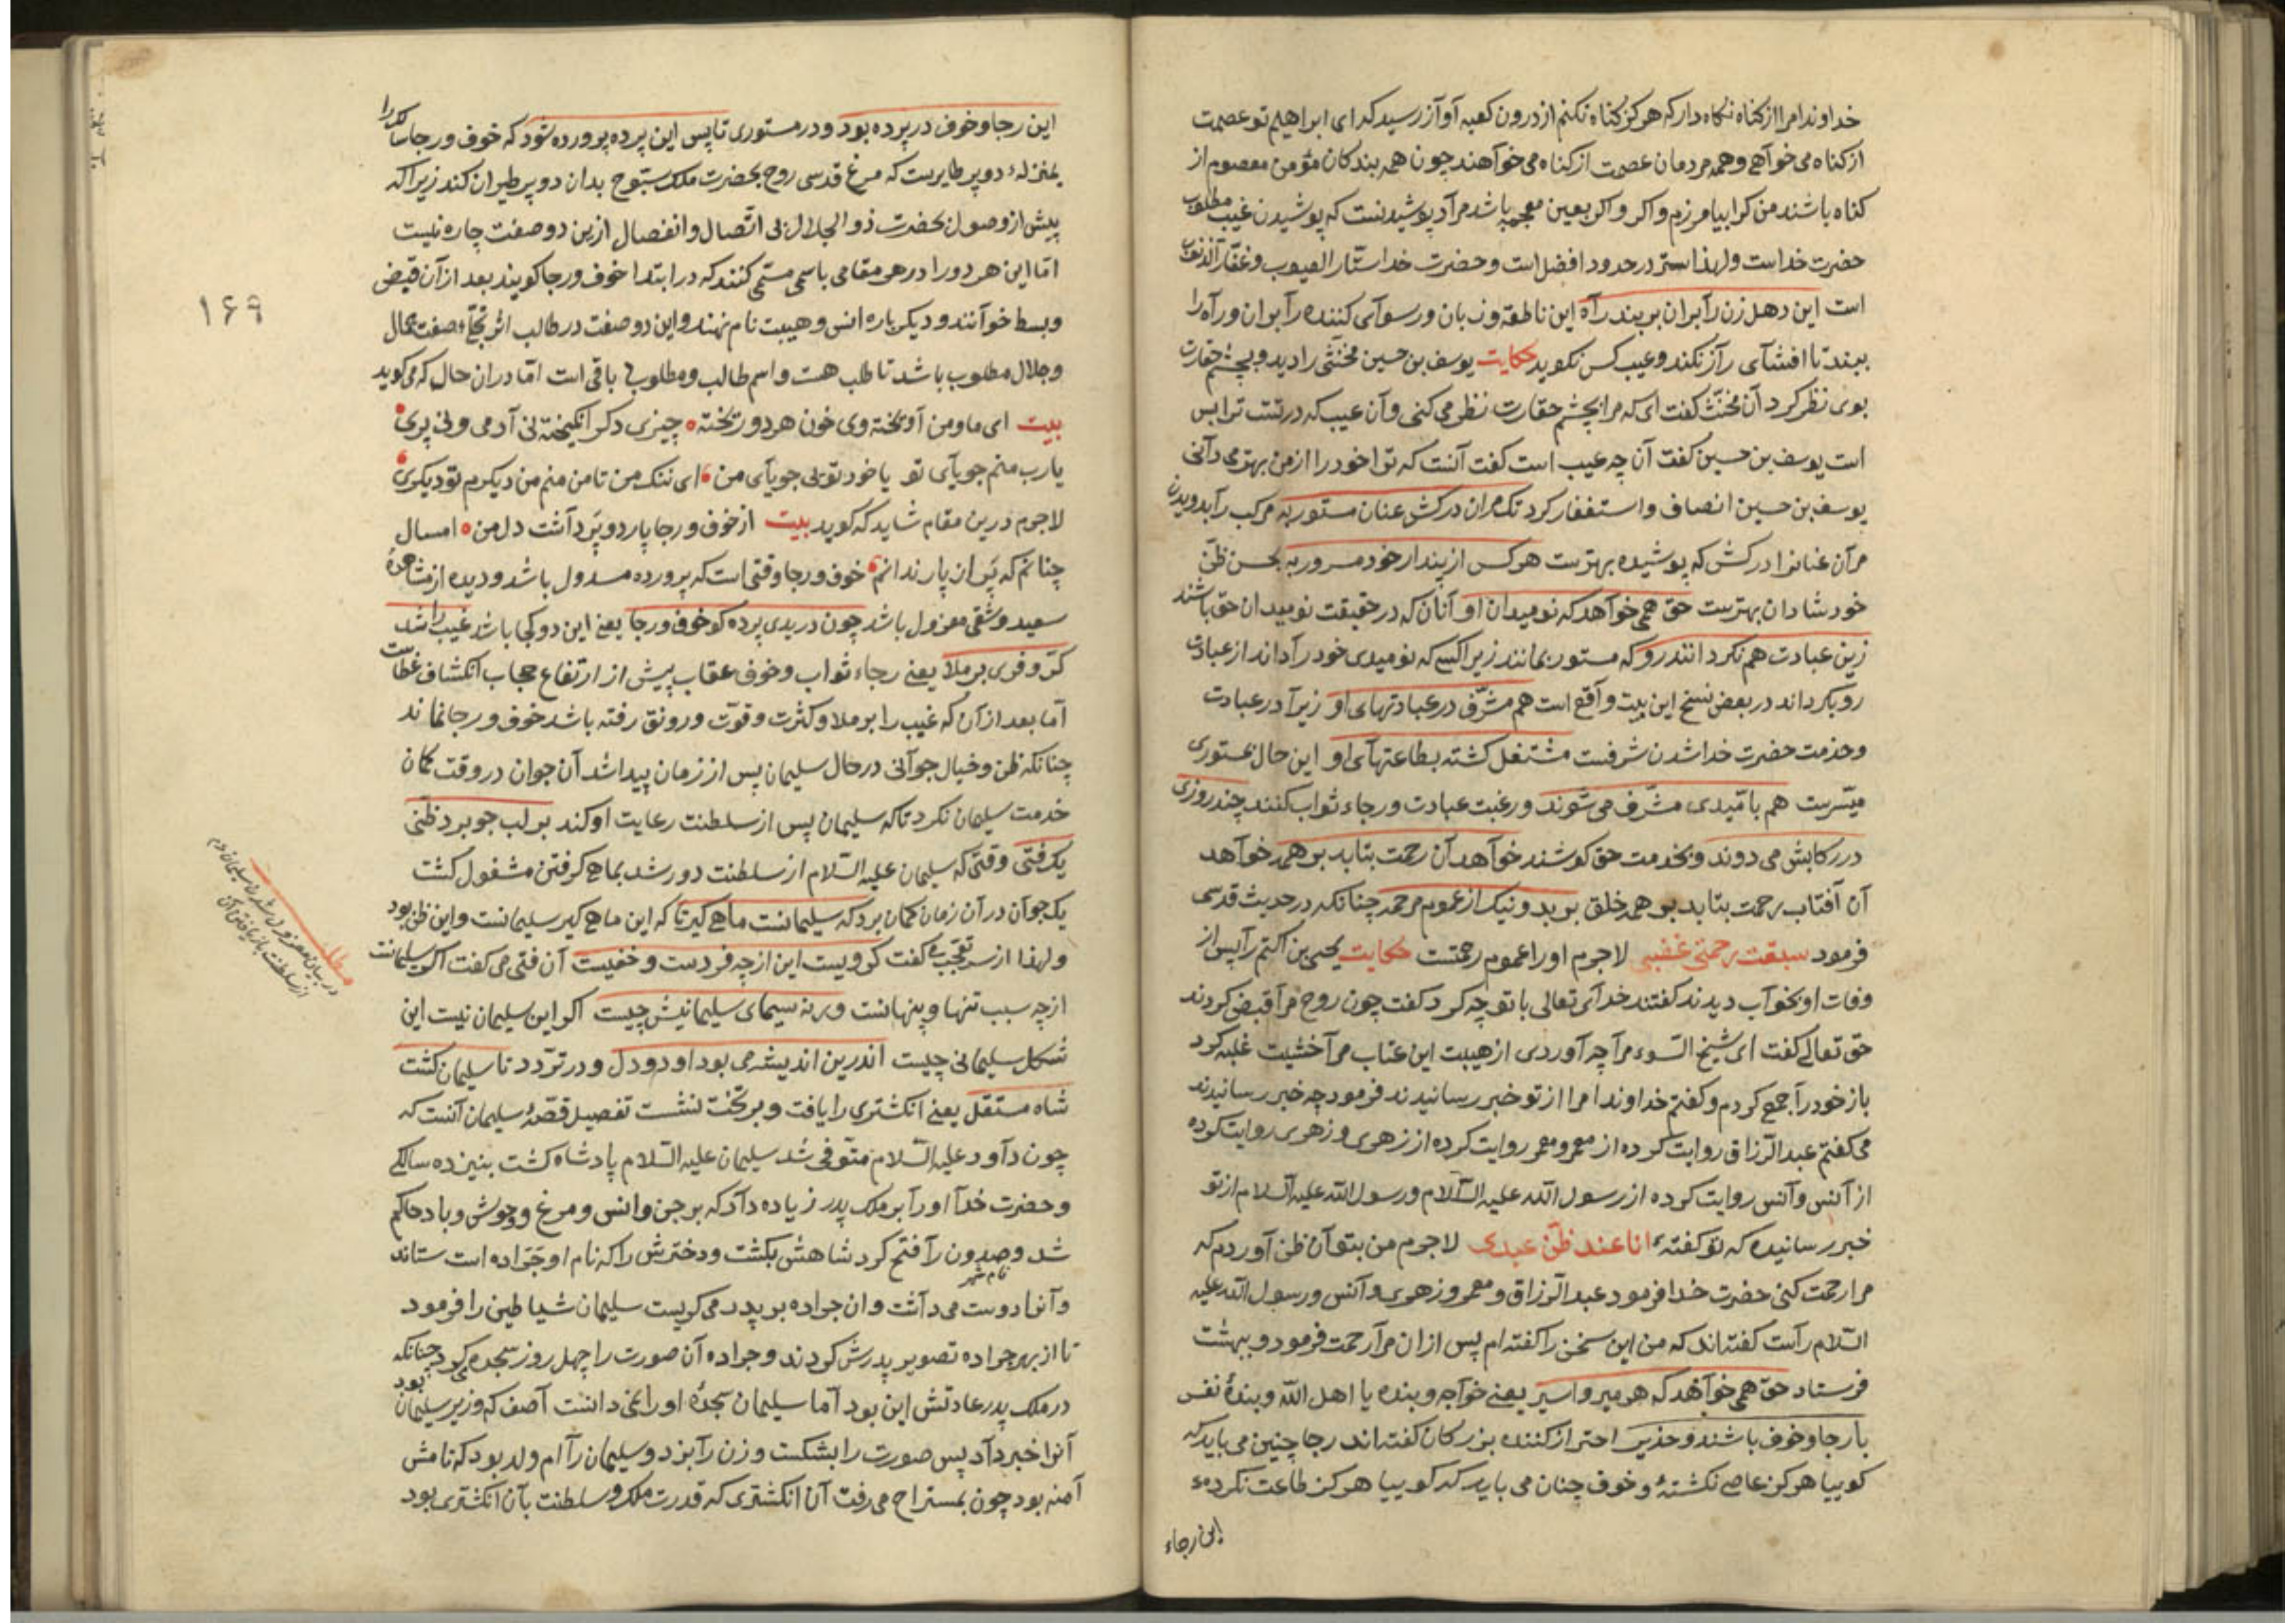 خداوندا مرا از کناه نکاه دار که هرکز کناه نکنم از درون کعبه آواز رسید که ای ابراهیم تو عصمت
از کناه می خواهی و همه مردمان عصمت از کناه می خواهند چون همه بندکان مؤمن معصوم از
کناه باشند من کرا بیامرزم و اکر بعین معجمه باشد مراد پوشیدنست که پوشیدن غیب مطلوب
حضرت خداست و لهذا ستر در حدود افضل است و حضرت خدا ستّار العیوب و غفّار الذنوب
است این دهل زن را بران بربند راه این ناطقه و زبان و رسوآی کننده را بران و راه را
ببند تا افشآی راز نکند و عیب کس نکوید حکایت یوسف بن حسین مخنثی را دید و بچشم حقارت
بوی نظر کرد آن مخنّث کفت ای که مرا بچشم حقارت نظر می کنی و آن عیب که در تست ترا بس
است یوسف بن حسین کفت آن چه عیب است کفت آنست که تو خود را از من بهتر می دانی
یوسف بن حسین انصاف و استغفار کرد تک مران درکش عنان مستور به مرکب را بدویدن
مران عنانرا درکش که پوشیده بهترست هر کس از پندار خود مسرور به بحسن ظنّ
خود شادان بهترست حق همی خواهد که نومیدان او آنان که در حقیقت نومیدان حق باشند
زین عبادت هم نکردانند رو که مستور بمانند زیرا کسی که نومیدی خود را داند از عبادت
رو بکرداند در بعض نسخ این بیت واقع است هم مشرّف در عبادتهای او زیرا در عبادت
و خدمت حضرت خدا شدن شرفست مشتغل کشته بطاعتهآی او این حال بمستوری
میسّرست هم بامّیدی مشرّف می شوند و رغبت عبادت و رجاء ثواب کنند چند روزی
در رکابش می دوند و بخدمت حق کوشند خواهد آن رحمت بتابد بر همه خواهد
آن آفتاب رحمت بتابد بر همه خلق بر بد و نیک از عموم مرحمه چنانکه در حدیث قدسی
فرمود سبقت رحمتی غضبی لاجرم او را عموم رحمتست حکایت یحیی بن اکثم را پس از
وفات او بخواب دیدند کفتند خدآی تعالی با تو چه کرد کفت چون روح مرا قبض کردند
حق تعالی کفت ای شیخ السّوء مرا چه آوردی از هیبت این عتاب مرا خشیت غلبه کرد
باز خود را جمع کردم و کفتم خداوندا مرا از تو خبر رسانیدند فرمود چه خبر رسانیدند
می کفتم عبد الرّزاق روایت کرده از معمر و معمر روایت کرده از زهری و زهری روایت کرده
از آنس و آنس روایت کرده از رسول اللّه علیه السّلام و رسول اللّه علیه السّلام از تو
خبر رسانیده که تو کفتهٔ انا عند ظنّ عبدی لاجرم من بتو آن ظن آوردم که
مرا رحمت کنی حضرت خدا فرمود عبد الرّزاق و معمر و زهری و آنس و رسول اللّه علیه
السّلام راست کفته اند که من این سخن را کفته ام پس از ان مرا رحمت فرمود و بهشت
فرستاد حق همی خواهد که هر میر و اسیر یعنی خواجه و بنده یا اهل اللّه و بندهٔ نفس
با رجا و خوف باشند و حذیر احتراز کننده بزرکان کفته اند رجا چنین می باید که
کوییا هرکز عاصی نکشتهٔ و خوف چنان می باید که کوییا هرکز طاعت نکردهٔ
این رجاء
این رجا و خوف در پرده بود و در مستوری تا پس این پرده پرورده شود که خوف و رجا سالک را
بمنزلهٔ دو پر طایرست که مرغ قدسی روح بحضرت ملک سبّوح بدان دو پر طیران کند زیرا که
پیش از وصول بحضرت ذو الجلال بی اتّصال و انفصال ازین دو صفت چاره نیست
امّا این هر دو را در هر مقامی باسمی مسمّی کنند که در ابتدا خوف و رجا کویند بعد از آن قبض
و بسط خوآنند و دیکر باره انس و هیبت نام نهند و این دو صفت در طالب اثر تجلّئ صفت جمال
و جلال مطلوب باشد تا طلب هست و اسم طالب و مطلوبی باقی است امّا دران حال که می کوید
بیت ای ما و من آویخته وی خون هر دو ریخته چیزی دکر انکیخته نی آدمی و نی پری
یارب منم جویآی تو یا خود تویی جویآی من ای ننک من تا من منم من دیکرم تو دیکری
لاجرم درین مقام شاید که کوید بیت از خوف و رجا پار دو پر داشت دل من امسال
چنانم که پر از پار ندانم خوف و رجا وقتی است که پرورده مسدول باشد و دیده از مشاهدهٔ
سعید و شقی معزول باشد چون دریدی پرده کو خوف و رجا یعنی این دو کجا باشد غیب را شد
کرّ و فری بر ملا یعنی رجاء ثواب و خوف عقاب پیش از ارتفاع حجاب انکشاف غطاست
امّا بعد از آن که غیب را بر ملا و کثرت و قوّت و رونق رفته باشد خوف و رجا نماند
چنانکه ظن و خیال جوآنی در حال سلیمان پس از زمان پیدا شد آن جوان در وقت کمان
خدمت سلیمان نکرد تا که سلیمان پس از سلطنت رعایت او کند بر لب جو برد ظنّی
یک فتی وقتی که سلیمان علیه السّلام از سلطنت دور شد بماهی کرفتن مشغول کشت
یک جوآن در آن زمان کمان برد که سلیمانست ماهی کیر تا که این ماهی کیر سلیمانست و این ظن بود
و لهذا از سر تعجّبی کفت کر ویست این از چه فردست و خفیست آن فتی می کفت اکر سلیمانست
از چه سبب تنها و پنهانست ورنه سیمای سلیمانیش چیست اکر این سلیمان نیست این
شکل سلیمانی چیست اندرین اندیشه می بود او دو دل و در تردّد تا سلیمان کشت
شاه مستقل یعنی انکشتری را یافت و بر تخت نشست تفصیل قصّهٔ سلیمان آنست که
چون داود علیه السّلام متوفّی شد سلیمان علیه السّلام پادشاه کشت بسیزده سالکی
و حضرت خدا او را بر ملک پدر زیاده داد که بر جن و انس و مرغ و وحوش و باد حاکم
شد و صیدون را فتح کرد شاهش بکشت و دخترش را که نام او جرّاده است ستاند
نام شهر
و آنرا دوست می داشت و ان جراده بر پدر می کریست سلیمان شیاطین را فرمود
تا از بهر جراده تصویر پدرش کردند و جراده آن صورت را چهل روز سجده می کرد چنانکه
در ملک پدر عادتش این بود امّا سلیمان سجدهٔ او را نمی دانست آصف که وزیر سلیمان بود
آنرا خبر داد پس صورت را بشکست و زن را بزد و سلیمان را ام ولد بود که نامش
آمنه بود چون بمستراح می رفت آن انکشتری که قدرت ملک و سلطنت بآن انکشتری بود
۱۶۹
مطلب
در بیان معزول شدن سلیمان دم
از سلطنت باز یافتن آن